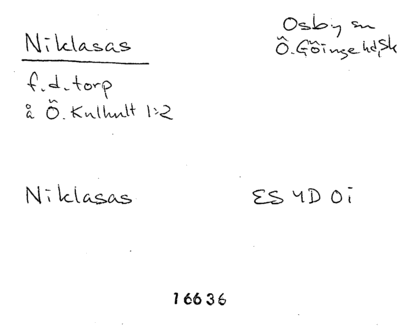 Niklasas
Osby sn
Ö. Göinge hd, Sk
f.d. torp
å Ö. Kulhult 1:2
Niklasas
ES 4D 0i
16636